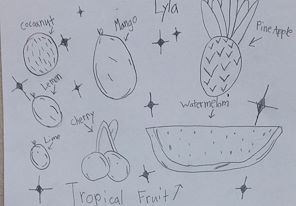 Lyla
Cocoanut
Mango
Pine Apple
Lemon
Watermelon
Cherry
Lime
Tropical Fruit